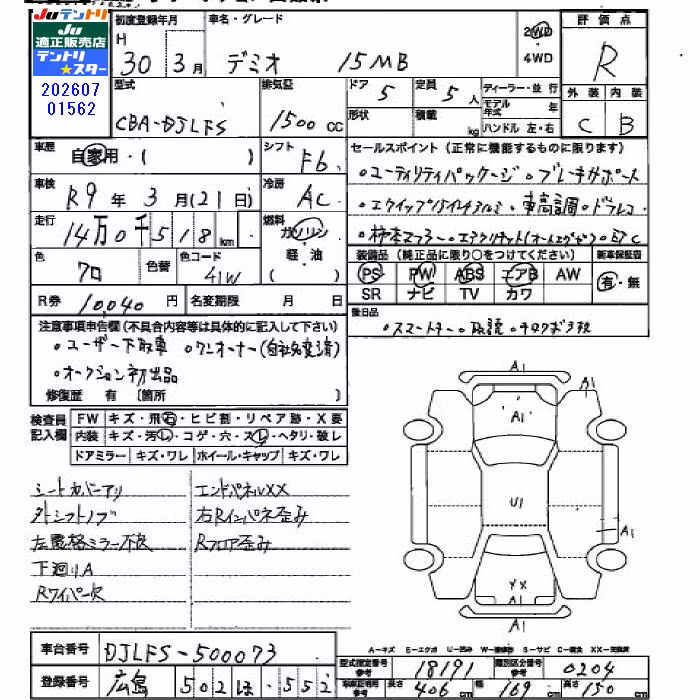 Juテントリ
Ju
適正販売店
テントリ
★スター
202607
01562
初度登録年月
H
30 年 3 月
車名・グレード
デミオ 15MB
2WD
・
4WD
評価点
R
外装 内装
C B
型式
CBA-DJLFS
排気量
1500 cc
ドア
5
定員
5 人
形状
積載
kg
ディーラー・並行
モデル年式 年
ハンドル 左・右
車歴
自家用・( )
シフト
F6
セールスポイント (正常に機能するものに限ります)
車検
R9 年 3 月(21日)
冷房
AC
走行
14万0千518 km
燃料
ガソリン
・
軽・油
( )
色
クロ
色替
色コード
41W
装備品 (純正品に限り○をつけてください)
PS PW ABS エアB AW
SR ナビ TV カワ
新車保証書
有・無
R券 10,040 円
名変期限 月 日
後日品
・スマートキー ・取説
注意事項申告欄(不具合内容等は具体的に記入して下さい)
・ユーザー下取車 ・ワンオーナー(自社名変済)
・オークション初出品
修復歴 有 〔箇所 〕
検査員
記入欄
FW キズ・飛石・ヒビ割・リペア跡・X要
内装 キズ・汚レ・コゲ・穴・スレ・ヘタリ・破レ
ドアミラー キズ・ワレ ホイール・キャップ キズ・ワレ
シートカバーアリ
外シフトノブ
左電格ミラー不良
下廻りA
Rワイパー欠
エンドパネルXX
右Rインパネ歪み
Rフロア歪み
A1
A1
A1
U1
A1
XX
A1
車台番号 DJLFS-500073
登録番号 広島 502 ほ ・552
A-キズ E-エクボ U-凹み W-補修跡 S-サビ C-腐食 XX-交換済
型式指定番号 18191
類別区分番号 0204
長さ 406 cm 幅 169 cm 高さ 150 cm